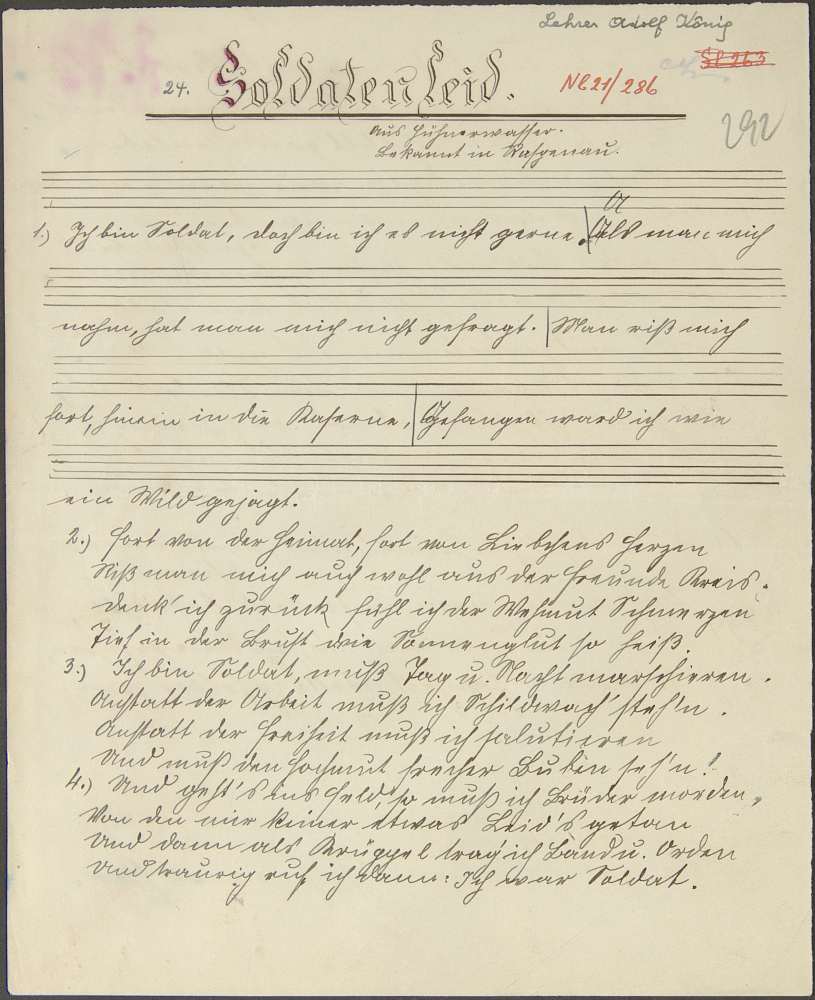 Lehrer Adolf König
24. Soldatenleid.
Nl 21/286
292
Aus Hühnerwasser.
Bekannt in Raspenau.
A
1.) Ich bin Soldat, doch bin ich es nicht gerne. Als man mich
nahm, hat man mich nicht gefragt. Man riß mich
fort, hinein in die Kaserne, Gefangen ward ich wie
ein Wild gejagt.
2.) Fort von der Heimat, fort von Liebchens Herzen
Riß man mich auch wohl aus der Freunde Kreis.
Denk' ich zurück fühl ich der Wehmut Schmerzen
Tief in der Brust wie Sonnenglut so heiß.
3.) Ich bin Soldat, muß Tag u. Nacht marschieren.
Anstatt der Arbeit muß ich Schildwach' steh'n.
Anstatt der Freiheit muß ich salutieren
Und muß den Hochmut frecher Buben seh'n!
4.) Und geht's ins Feld, so muß ich Brüder morden,
Von den mir keiner etwas Leid's getan
Und dann als Krüppel trag' ich Band u. Orden
Und traurig ruf' ich dann: Ich war Soldat.